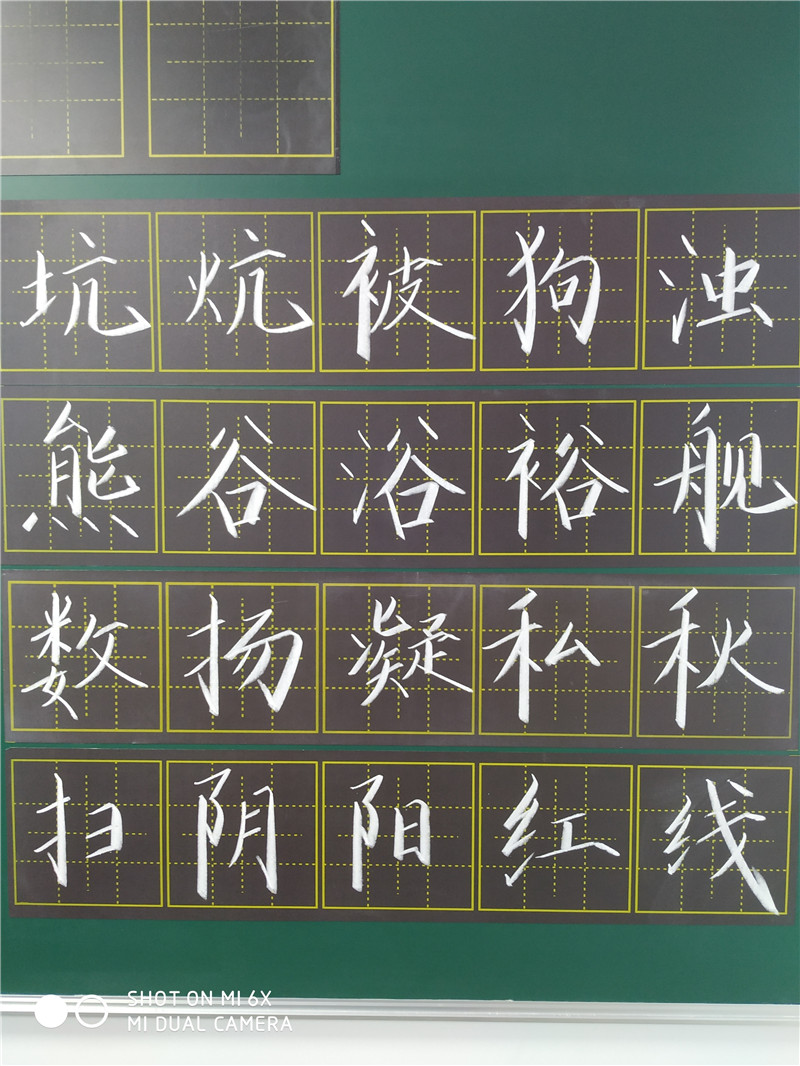 坑炕被狗浊
熊谷浴裕舰
数扬凝私秋
扫阴阳红线
SHOT ON MI 6X
MI DUAL CAMERA